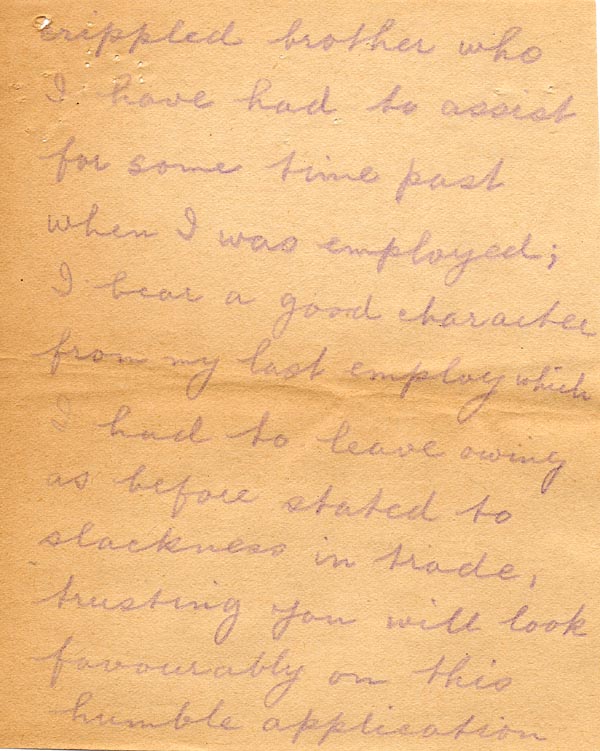 crippled brother who
I have had to assist
for some time past
when I was employed;
I bear a good character
from my last employ which
I had to leave owing
as before stated to
slackness in trade,
trusting you will look
favourably on this
humble application